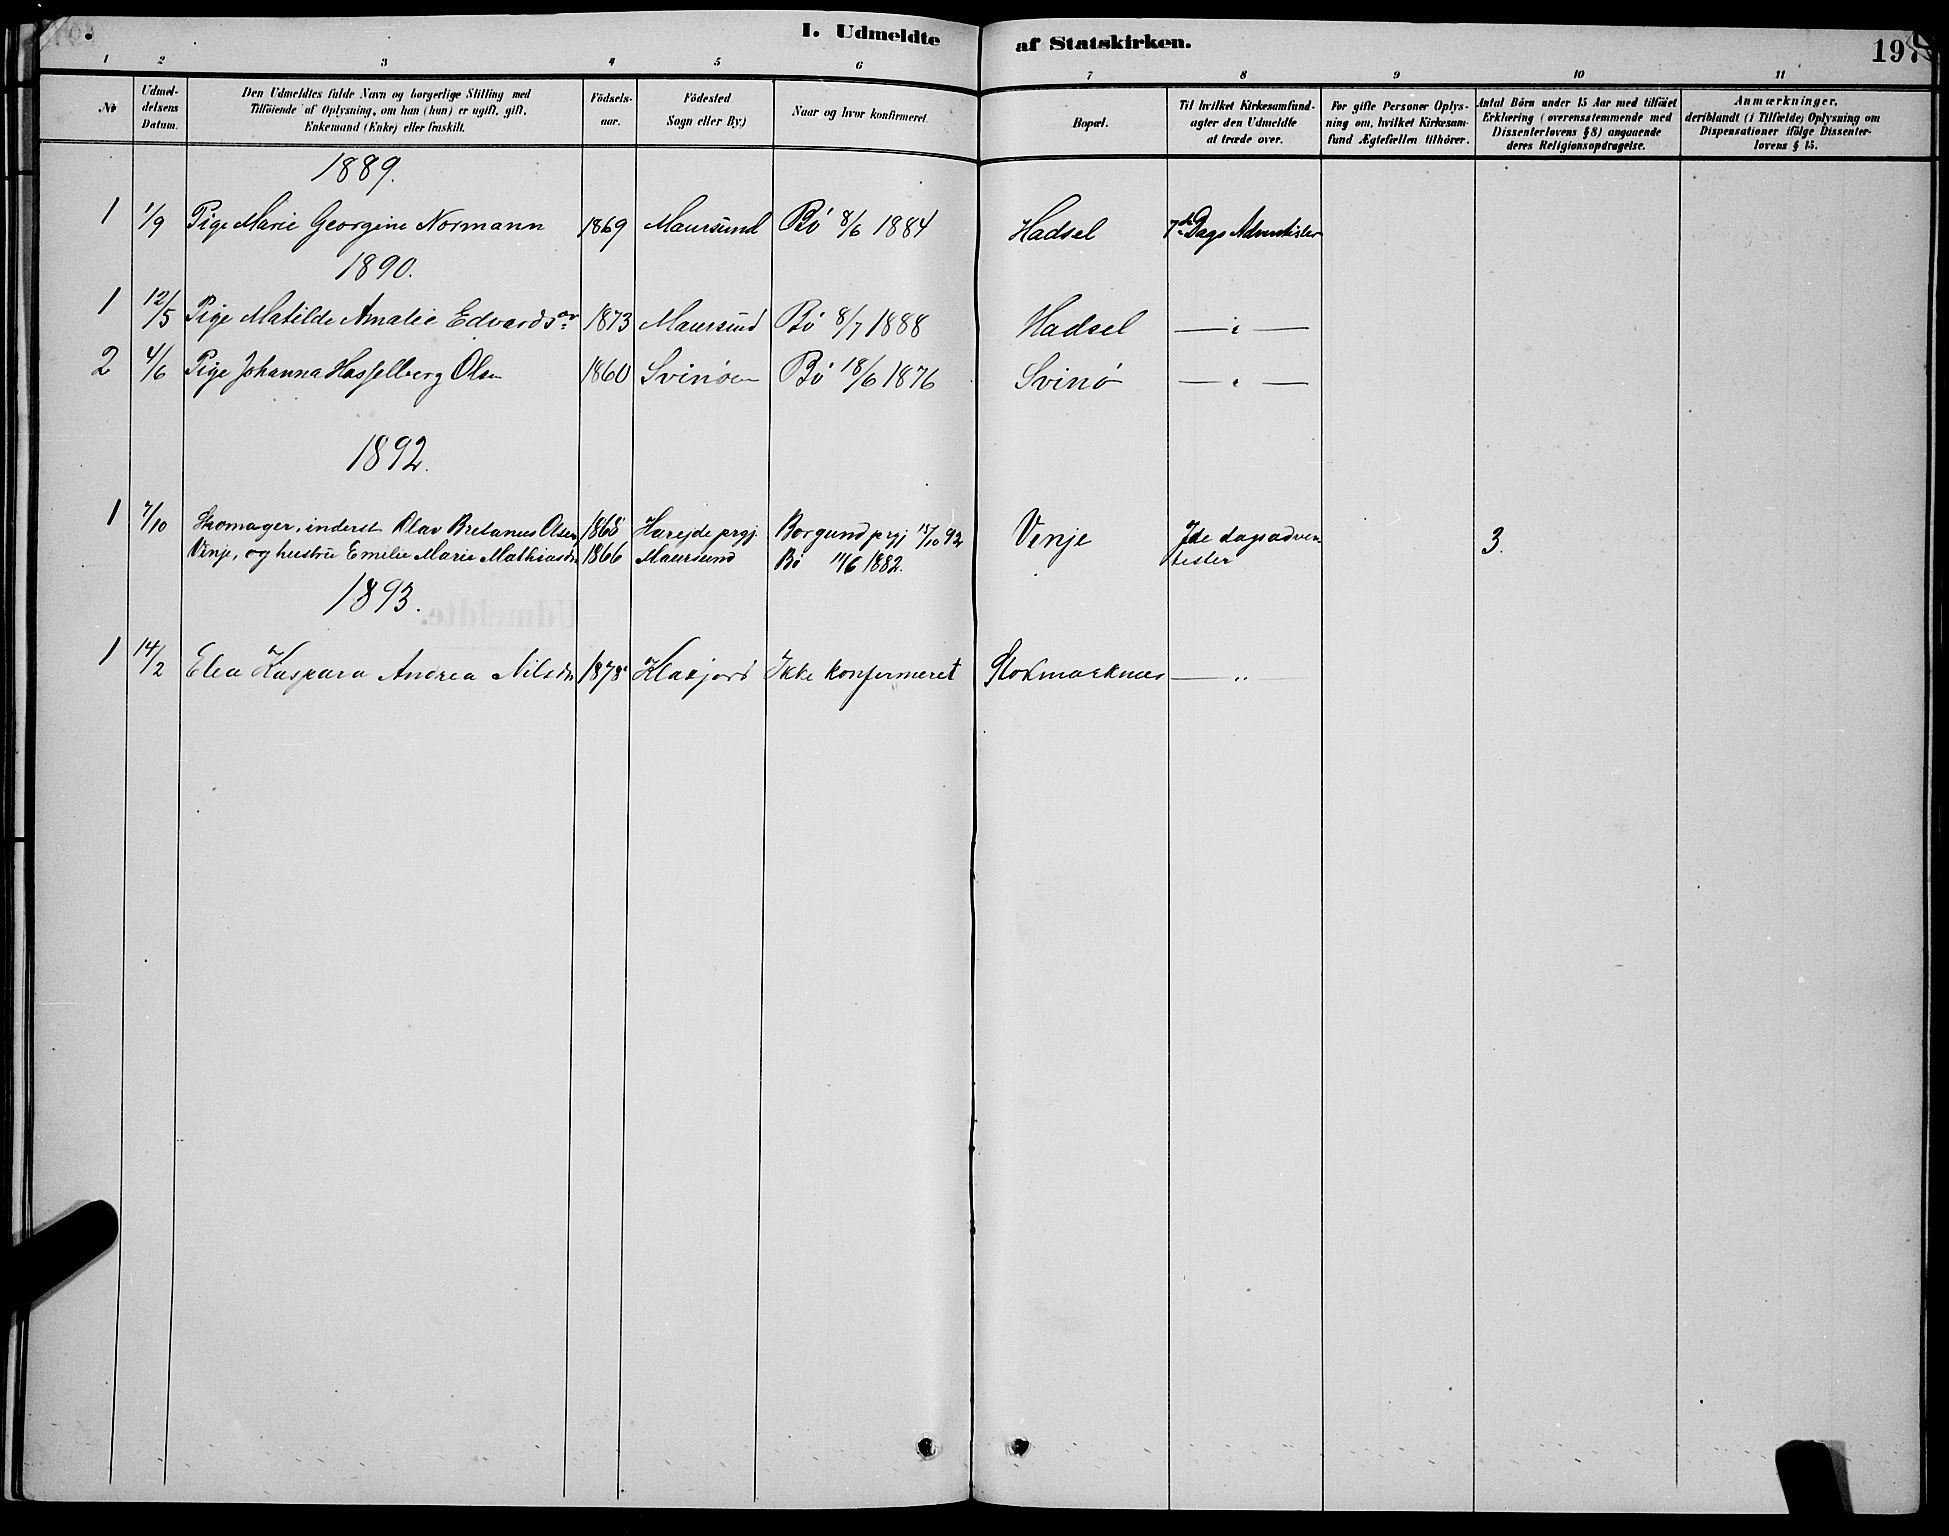 I. Udmeldte af Statskirken.
197
1 2 3 4 5 6 7 8 9 10 11
Nr
Udmel-
delsens
Datum.
Den Udmeldtes fulde Navn og borgerlige Stilling med
Tilföiende af Oplysning, om han (hun) er ugift, gift,
Enkemand (Enke) eller fraskilt.
Födsels-
aar.
Födested
Sogn eller By)
Naar og hvor konfirmeret.
Bopæl.
Til hvilket Kirkesamfund-
agter den Udmeldte
at træde over.
For gifte Personer Oplys-
ning om, hvilket Kirkesam-
fund Ægtefællen tilhörer.
Antal Börn under 15 Aar med tilföiet
Erklæring (overensstemmende med
Dissenterlovens § 8) angaaende
deres Religionsopdragelse.
Anmærkninger,
deriblandt (i Tilfælde) Oplysning om
Dispensationer ifölge Dissenter-
lovens § 15.
1889.
1 1/9 Pige Marie Georgine Normann 1869 Maursund Bö 8/6 1884 Hadsel 7de Dags Adventister
1890.
1 12/5 Pige Matilde Amalie Edvardsen 1873 Maursund Bö 8/7 1888 Hadsel — " —
2 4/6 Pige Johanna Hasselberg Olsen 1860 Svinöen Bö 18/6 1876 Svinö — " —
1892.
1 7/10 Skomager, inderst Olav Bretanus Olsen 1865 Hareide prgj. Borgund prgj 92 Venje 7de dagsadven-
Vinje, og hustru Emilie Marie Mathiasdr 1866 Maursund Bö 11/6 1882. tister 3.
1893.
1 14/2 Elea Kaspara Andrea Nilsdr 1878 Klakjord Ikke konfirmeret Stokmarknes — " —